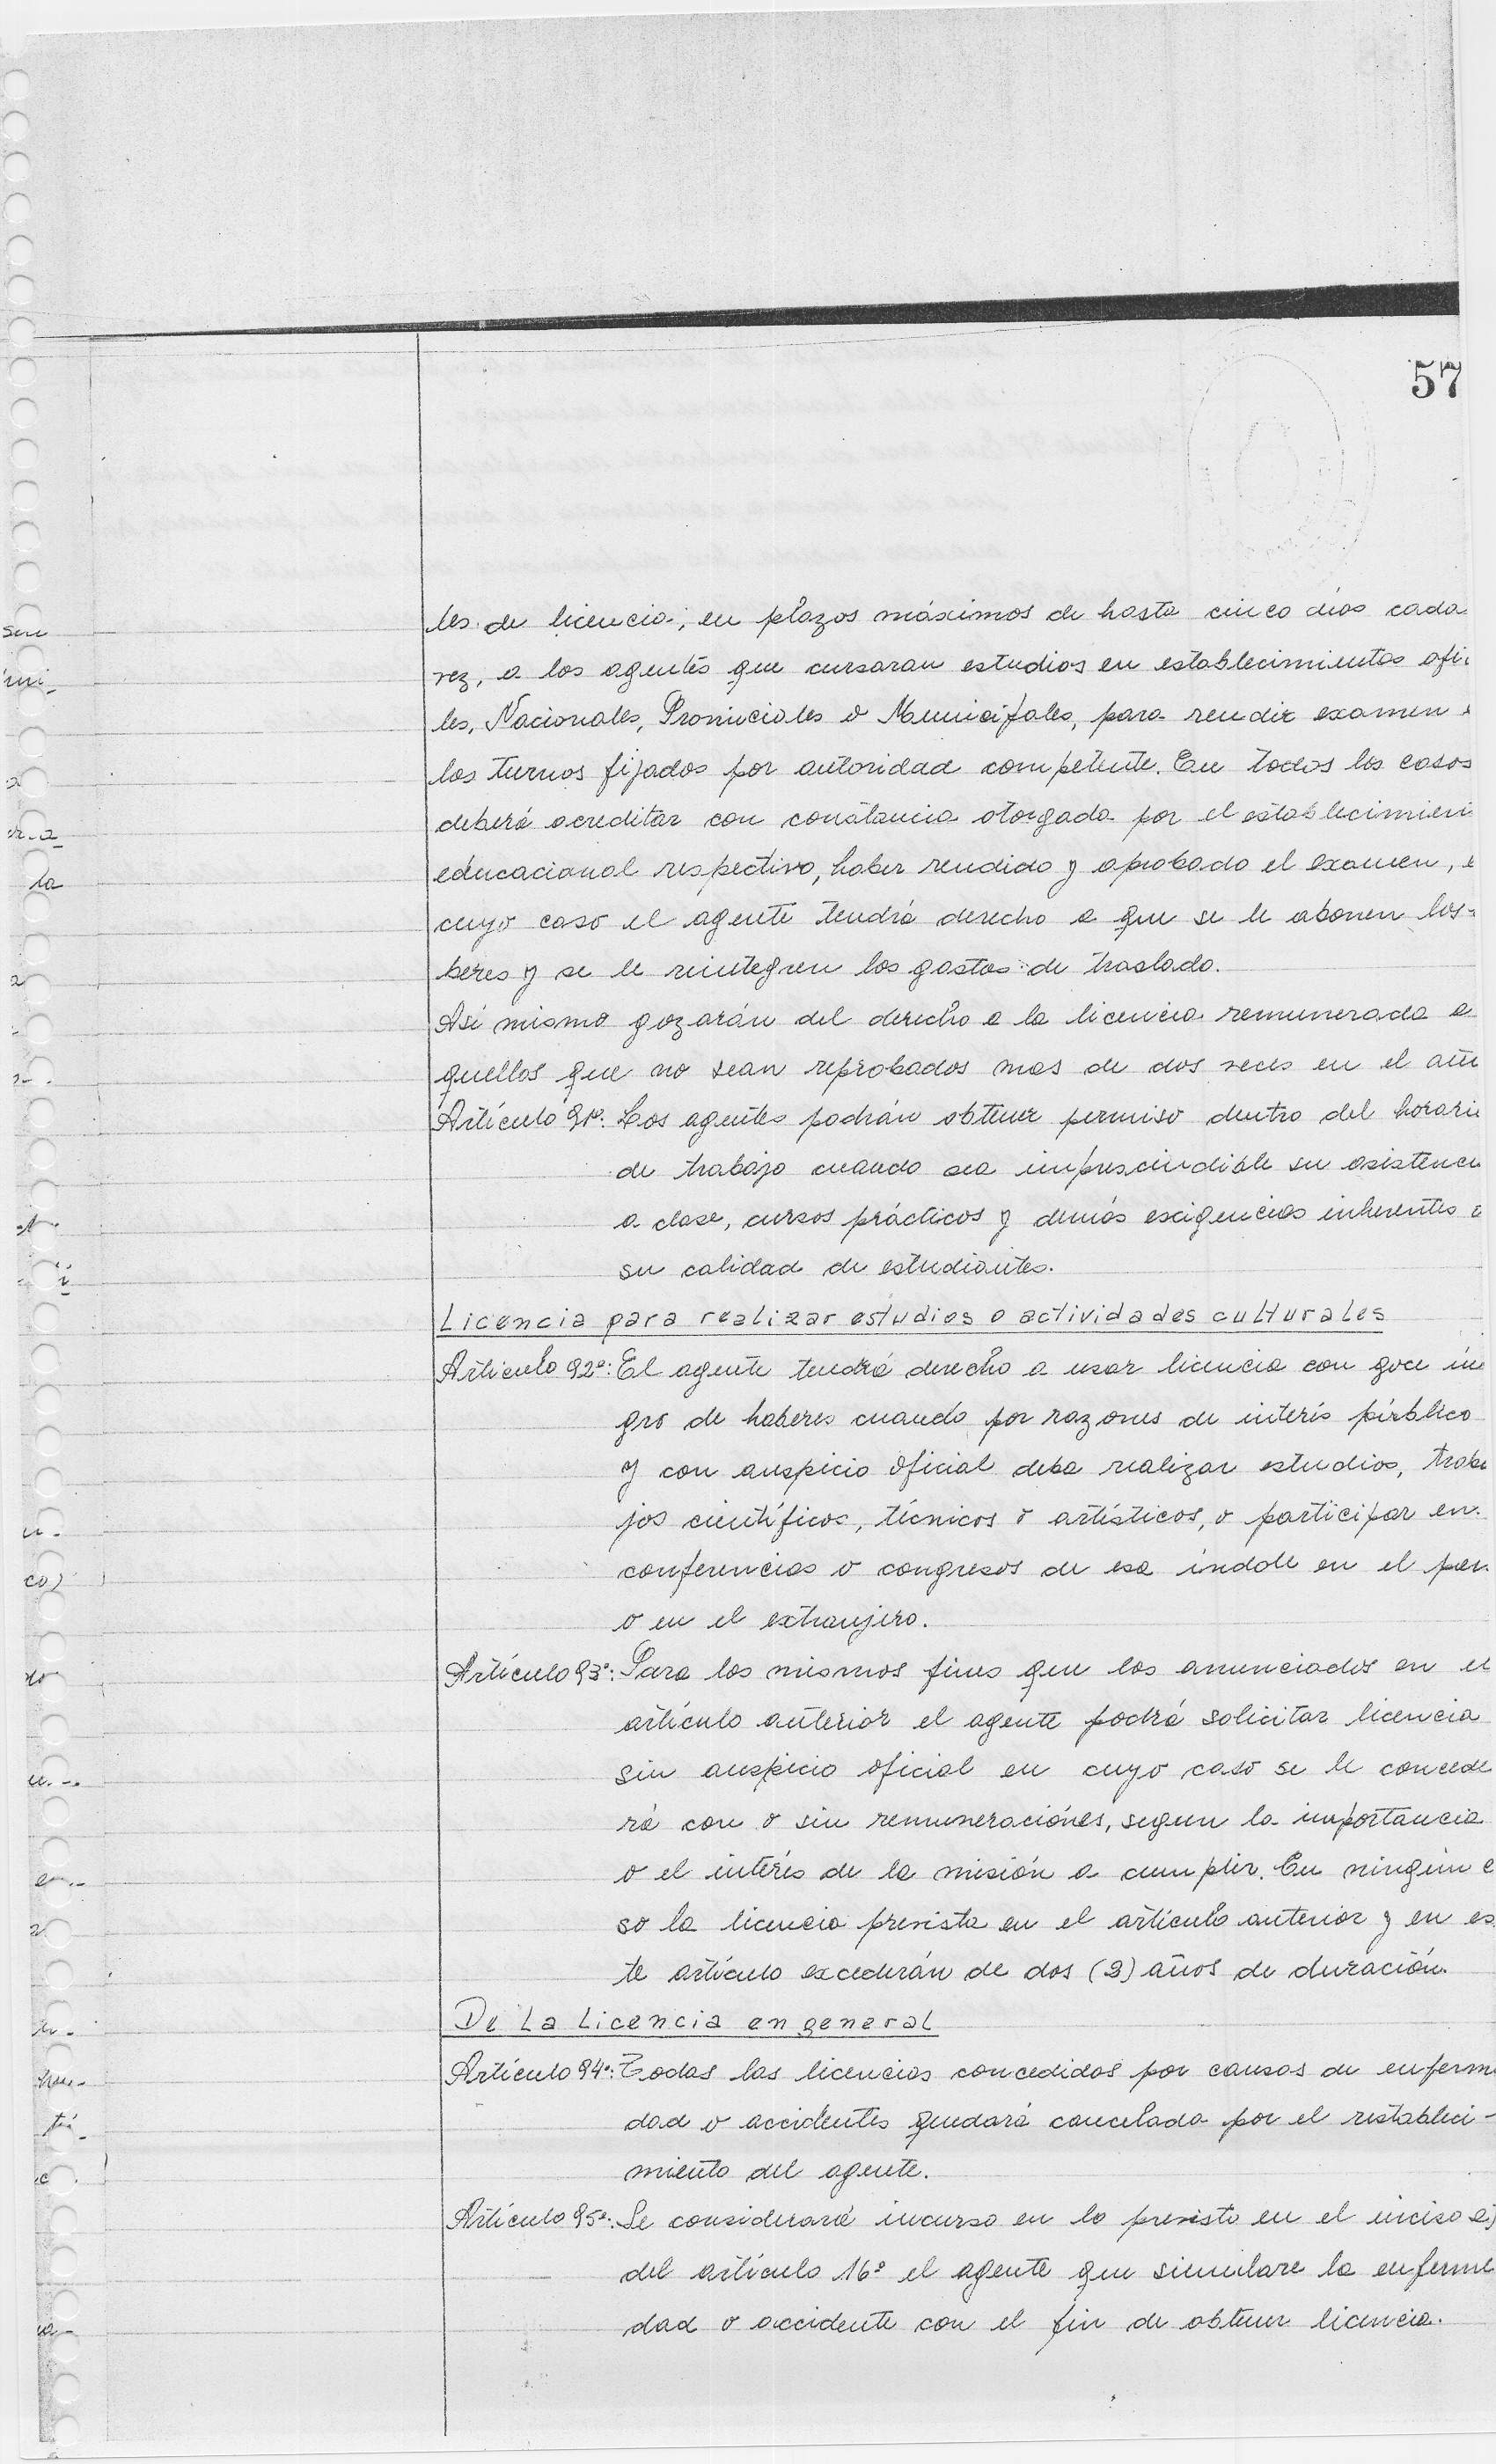 57
les de licencia; en plazos máximos de hasta cinco dias cada
vez, a los agentes que cursaran estudios en establecimientos ofi
les, Nacionales, Provinciales o Municipales, para rendir examen
los turnos fijados por autoridad competente. En todos los casos
deberá acreditar con constancia otorgada por el establecimien
educacional respectivo, haber rendido y aprobado el examen, e
cuyo caso el agente tendrá derecho a que se le abonen los
beres y se le reintegren los gastos de traslado.
Asi mismo gozarán del derecho a la licencia remunerada a
quellos que no sean reprobados mas de dos veces en el añ
Artículo 91º: Los agentes podrán obtener permiso dentro del horari
de trabajo cuando sea imprescindible su asistenci
a clase, cursos prácticos y demás exigencias inherentes a
su calidad de estudiantes.
Licencia para realizar estudios o actividades culturales
Artículo 92º: El agente tendrá derecho a usar licencia con goce ín
gro de haberes cuando por razones de interés público
y con auspicio oficial deba realizar estudios, traba
jos científicos, técnicos o artísticos, o participar en
conferencias o congresos de esa índole en el pa
o en el extranjero.
Artículo 93º: Para los mismos fines que los anunciados en el
artículo anterior el agente podrá solicitar licencia
sin auspicio oficial en cuyo caso se le concede
rá con o sin remuneraciónes, segun la importancia
o el interés de la misión a cumplir. En ningún c
so la licencia prevista en el artículo anterior y en es
te artículo excederán de dos (2) años de duración.
De la Licencia en general
Artículo 94º: Todas las licencias concedidas por causas de enferm
dad o accidentes quedará cancelada por el restableci-
miento del agente.
Artículo 95º: Se considerará incurso en lo previsto en el inciso a)
del artículo 16º el agente que simulare la enferme
dad o accidente con el fin de obtener licencia.